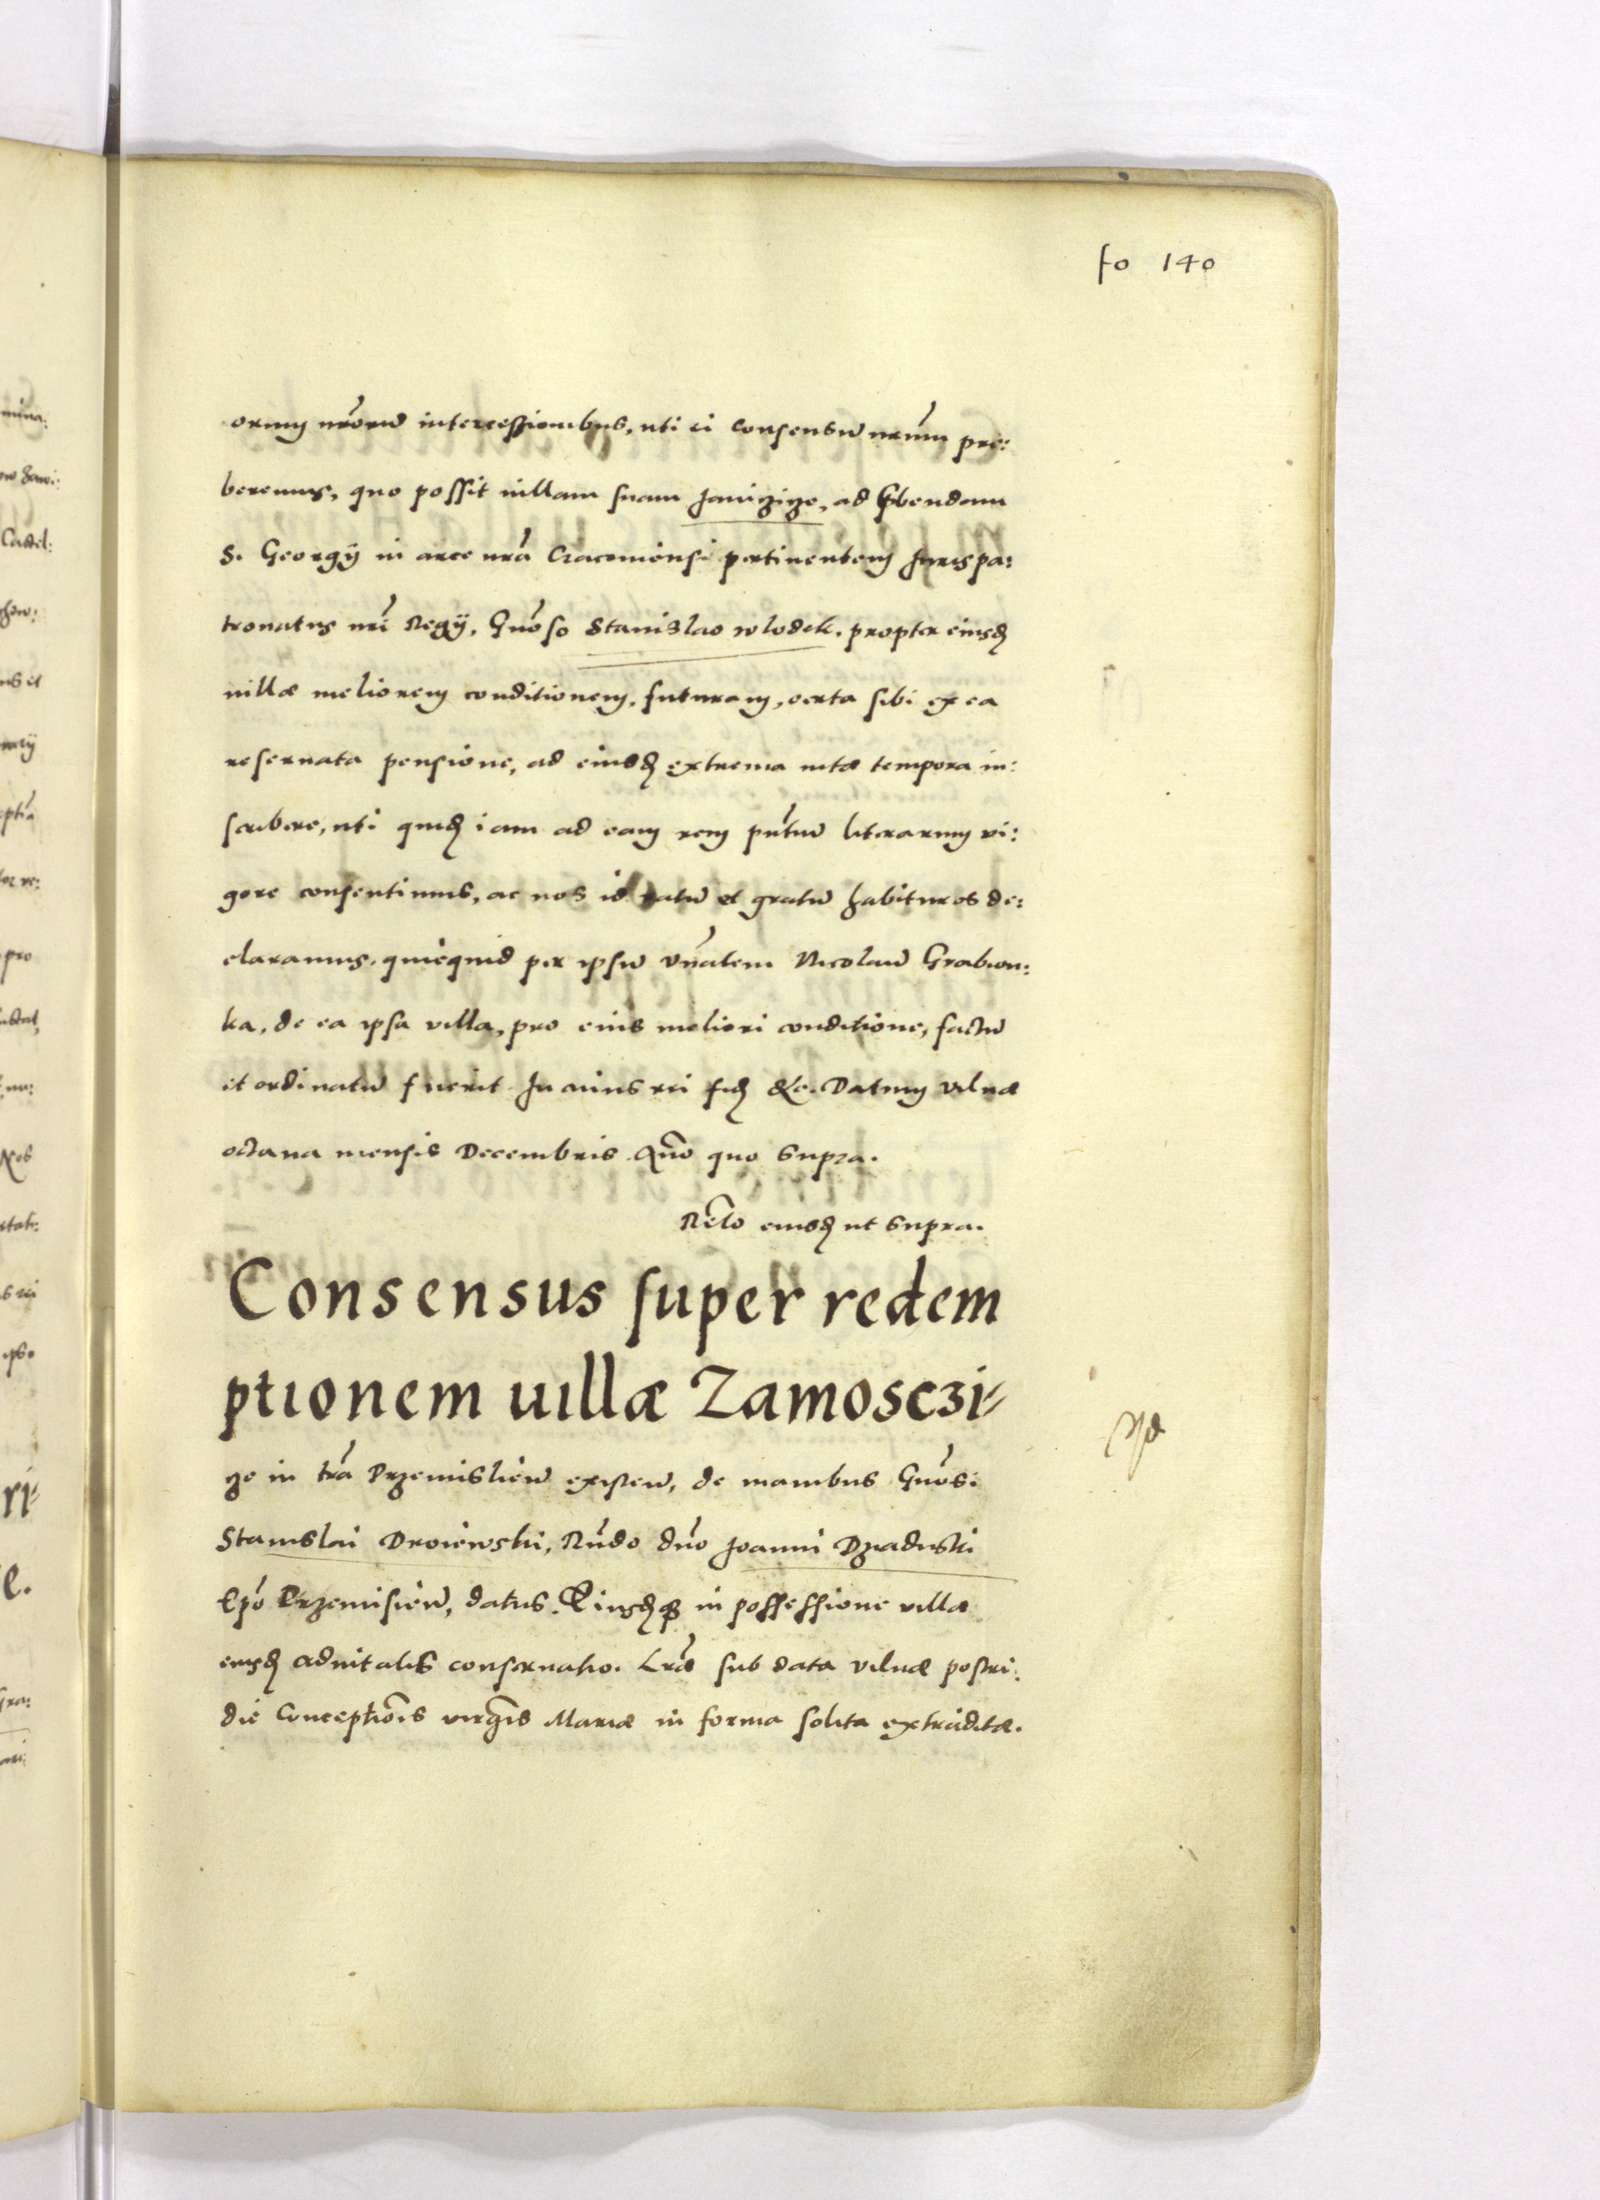 fo 140
orum nr̃orũ intercessionibus, uti ei consensũ nr̃um pre:
beremus, quo possit uillam suam Janizize, ad p̃bendam
S. Georgÿ in arce nr̃a Cracoviensi pertinentem Juris pa:
tronatus nr̃i Regÿ, Gñoso Stanislao Wlodek, propter eiusdẽ
uillæ meliorem conditionem, futuram, certa sibi ex ea
reseruata pensione, ad eiusdẽ extrema uitæ tempora in:
scribere, uti quidẽ iam ad eam rem pñtiũ literarum vi:
gore consentimus, ac nos id ratũ et gratũ habituros de:
claramus, quicquid per ipsũ Vñalem Nicolaũ Grabow:
ka, de ea ipsa villa, pro eius meliori conditione, factũ
et ordinatũ fuerit. In cuius rei fidẽ &c. Datum Vilnæ
octaua mensis Decembris Año quo supra.
Rel̃o eiusdẽ ut supra.
Consensus super redem
ptionem uillæ Zamosczi=
ze in tr̃a Przemisliẽn existeñ, de manibus Gñosi
Stanislai Droiewski, Rñdo dño Joanni Dziaduski
Ep̃o Przemisieñ, datus. Eiusdẽq3 in possessione villæ
eiusdẽ aduitalis conseruatio. Lr̃æ sub data Vilnæ postri:
die Conceptiõis virgĩs Mariæ in forma solita extraditæ.